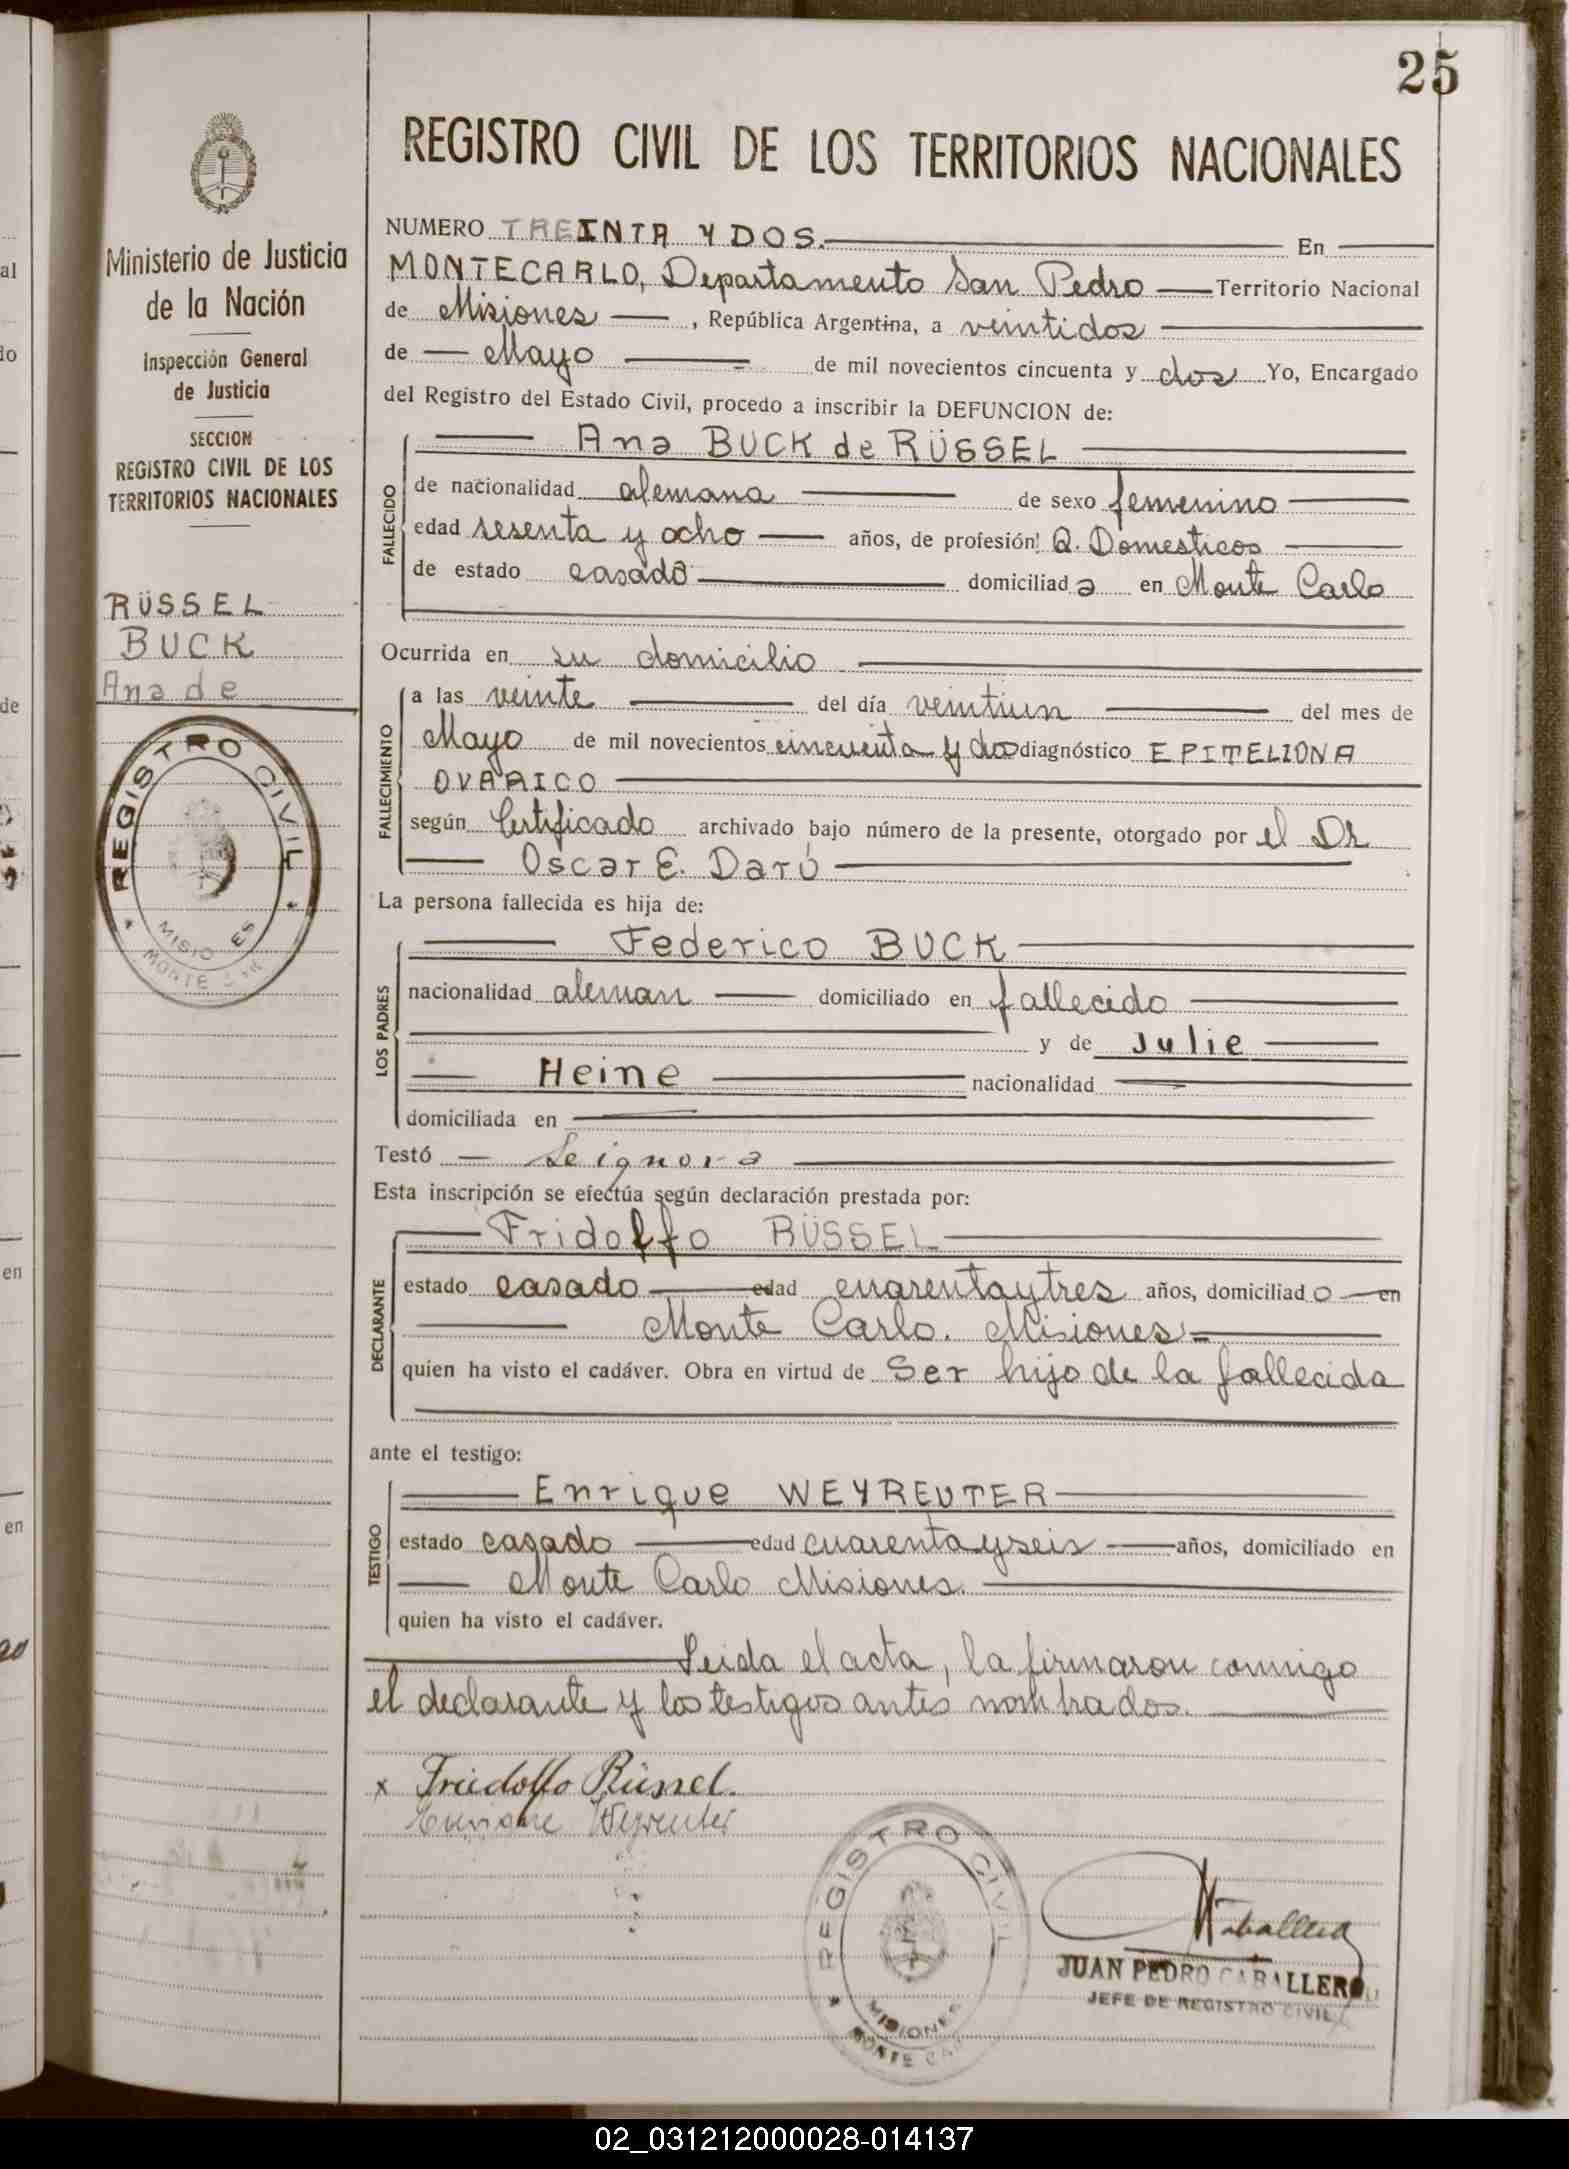 25
REGISTRO CIVIL DE LOS TERRITORIOS NACIONALES
Ministerio de Justicia
de la Nación
Inspección General
de Justicia
SECCION
REGISTRO CIVIL DE LOS
TERRITORIOS NACIONALES
RÜSSEL
BUCK
Ana de
REGISTRO CIVIL
MISIO ES
MONTE CAR
NUMERO TREINTA Y DOS. En
MONTECARLO, Departamento San Pedro Territorio Nacional
de Misiones , República Argentina, a veintidos
de Mayo de mil novecientos cincuenta y dos Yo, Encargado
del Registro del Estado Civil, procedo a inscribir la DEFUNCION de:
Ana BUCK de RÜSSEL
FALLECIDO
de nacionalidad alemana de sexo femenino
edad sesenta y ocho años, de profesión: Q. Domesticos
de estado casado domiciliad a en Monte Carlo
Ocurrida en su domicilio
FALLECIMIENTO
a las veinte del día veintiun del mes de
Mayo de mil novecientos cincuenta y dos diagnóstico EPITELIONA
OVARICO
según Certificado archivado bajo número de la presente, otorgado por el Dr
Oscar E. Darú
La persona fallecida es hija de:
LOS PADRES
Federico BUCK
nacionalidad aleman domiciliado en fallecido
y de Julie
Heine nacionalidad
domiciliada en
Testó Se ignora
Esta inscripción se efectúa según declaración prestada por:
DECLARANTE
Fridolfo RÜSSEL
estado casado edad cuarenta y tres años, domiciliad o en
Monte Carlo. Misiones
quien ha visto el cadáver. Obra en virtud de Ser hijo de la fallecida
ante el testigo:
TESTIGO
Enrique WEYREUTER
estado casado edad cuarenta y seis años, domiciliado en
Monte Carlo Misiones.
quien ha visto el cadáver.
Leida el acta, la firmaron conmigo
el declarante y los testigos antes nombrados.
x Fridolfo Rüssel.
Enrique Weyreuter
REGISTRO CIVIL
MISIONES
MONTE CAR
Caballero
JUAN PEDRO CABALLERO
JEFE DE REGISTRO CIVIL
02_031212000028-014137